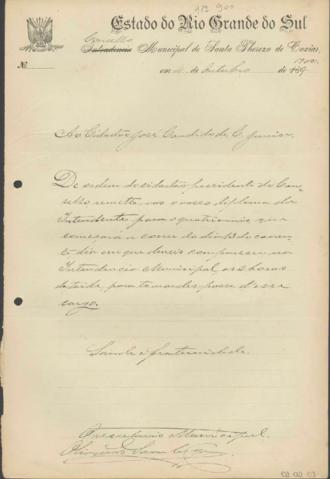 Estado do Rio Grande do Sul
Conselho
Intendencia Municipal de Santa Thereza de Caxias,
Nº em de Outubro de 189
1900
Ao Cidadão José Candido de C. Junior.
De ordem do cidadão presidente do Con-
selho remetto-vos o vosso diploma de
Intendente para o quatriennio que
começará a correr do dia 15 do corren-
te, dia em que deveis comparecer na
Intendencia Municipal, as 2 horas
da tarde para tomardes posse d'esse
cargo.
Saude e fraternidade.
Municipal.